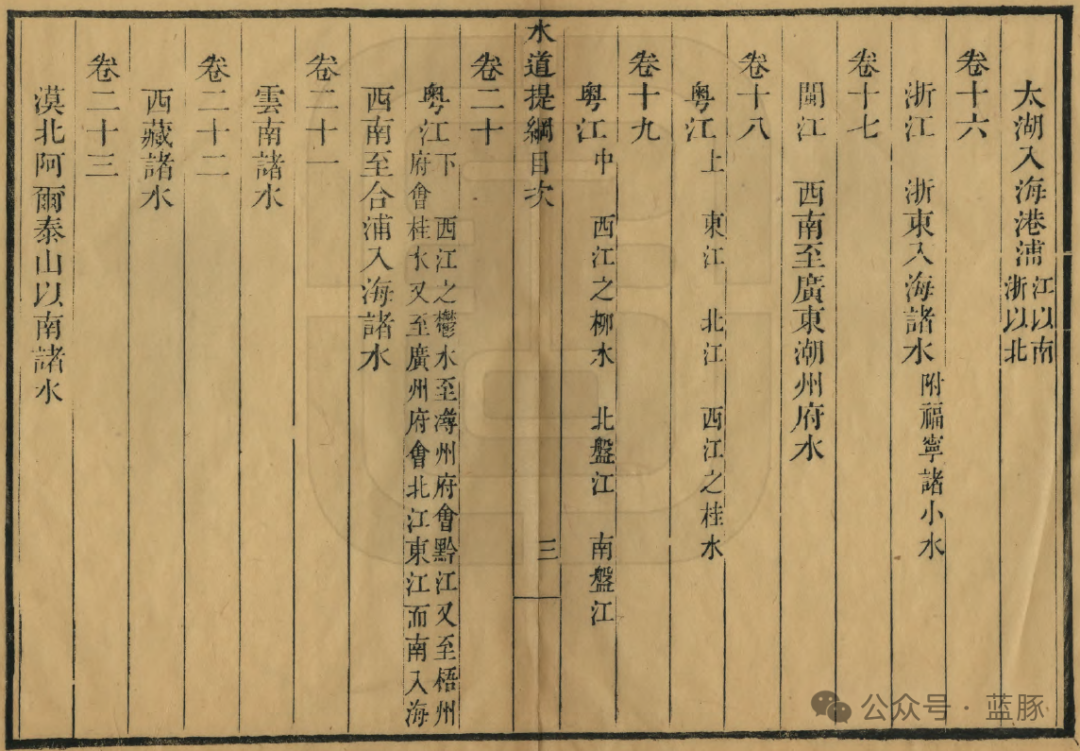 太湖入海港浦江以南浙以北
卷十六
浙江　浙東入海諸水附福寧諸小水
卷十七
閩江　西南至廣東潮州府水
卷十八
粵江上　東江　北江　西江之桂水
卷十九
粵江中　西江之柳水　北盤江　南盤江
水道提綱目次　三
卷二十
粵江下　西江之鬱水至潯州府會黔江又至梧州府會桂水又至廣州府會北江東江而南入海
西南至合浦入海諸水
卷二十一
雲南諸水
卷二十二
西藏諸水
卷二十三
漠北阿爾泰山以南諸水
公众号·蓝豚